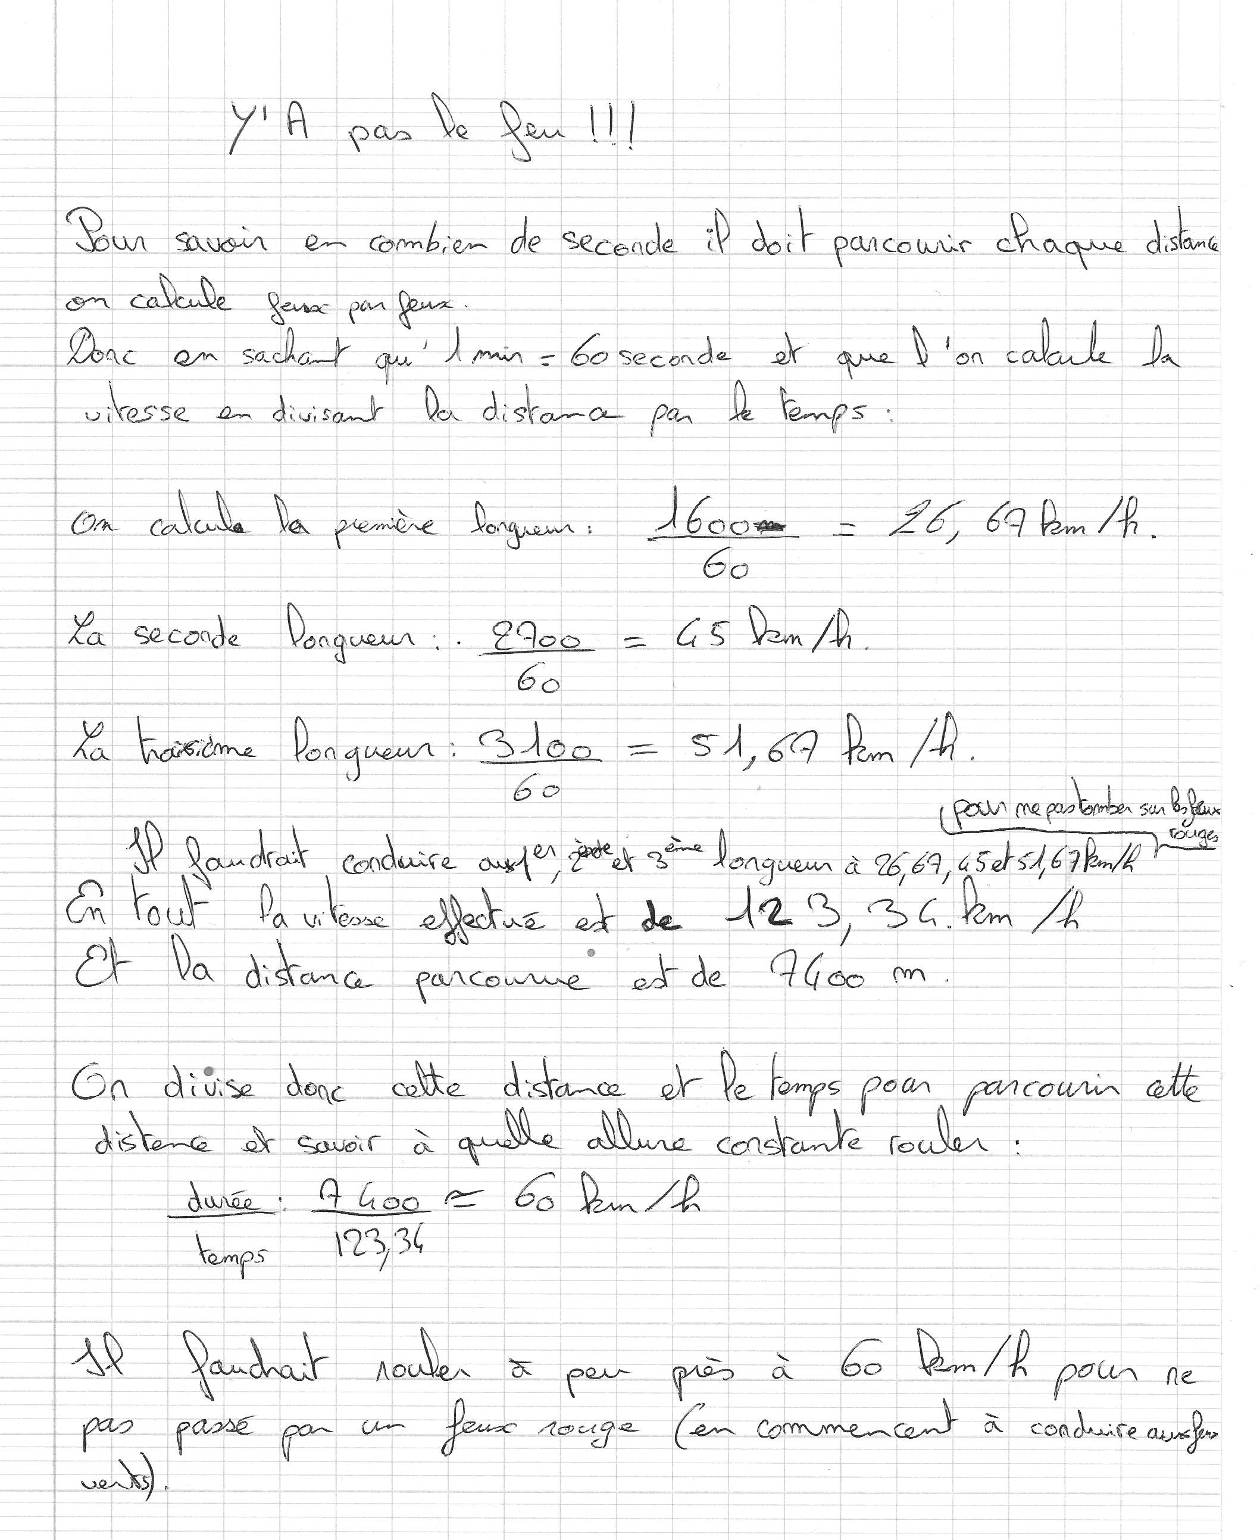 Y'A pas le feu !!!
Pour savoir en combien de seconde il doit parcourir chaque distance
on calcule feux par feux.
Donc en sachant qu'1 min = 60 seconde et que l'on calcule la
vitesse en divisant la distance par le temps :
On calcule la première longueur : 1600 / 60 = 26,67 km/h.
La seconde longueur : . 2700 / 60 = 45 km/h.
La troisième longueur : 3100 / 60 = 51,67 km/h.
pour ne pas tomber sur les feux
rouges
Il faudrait conduire aux 1er, 2ème et 3ème longueur à 26,67, 45 et 51,67 km/h
En tout la vitesse effectué est de 123,34. km/h
Et la distance parcourue est de 7400 m.
On divise donc cette distance et le temps pour parcourir cette
distance et savoir à quelle allure constante rouler :
durée / temps : 7400 / 123,34 ≈ 60 km/h
Il faudrait rouler à peu près à 60 km/h pour ne
pas passé par un feux rouge (en commencent à conduire aux feux
verts).